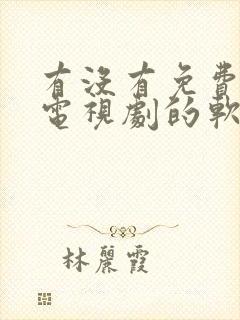 有沒有免費
電視劇的軟
林麗霞